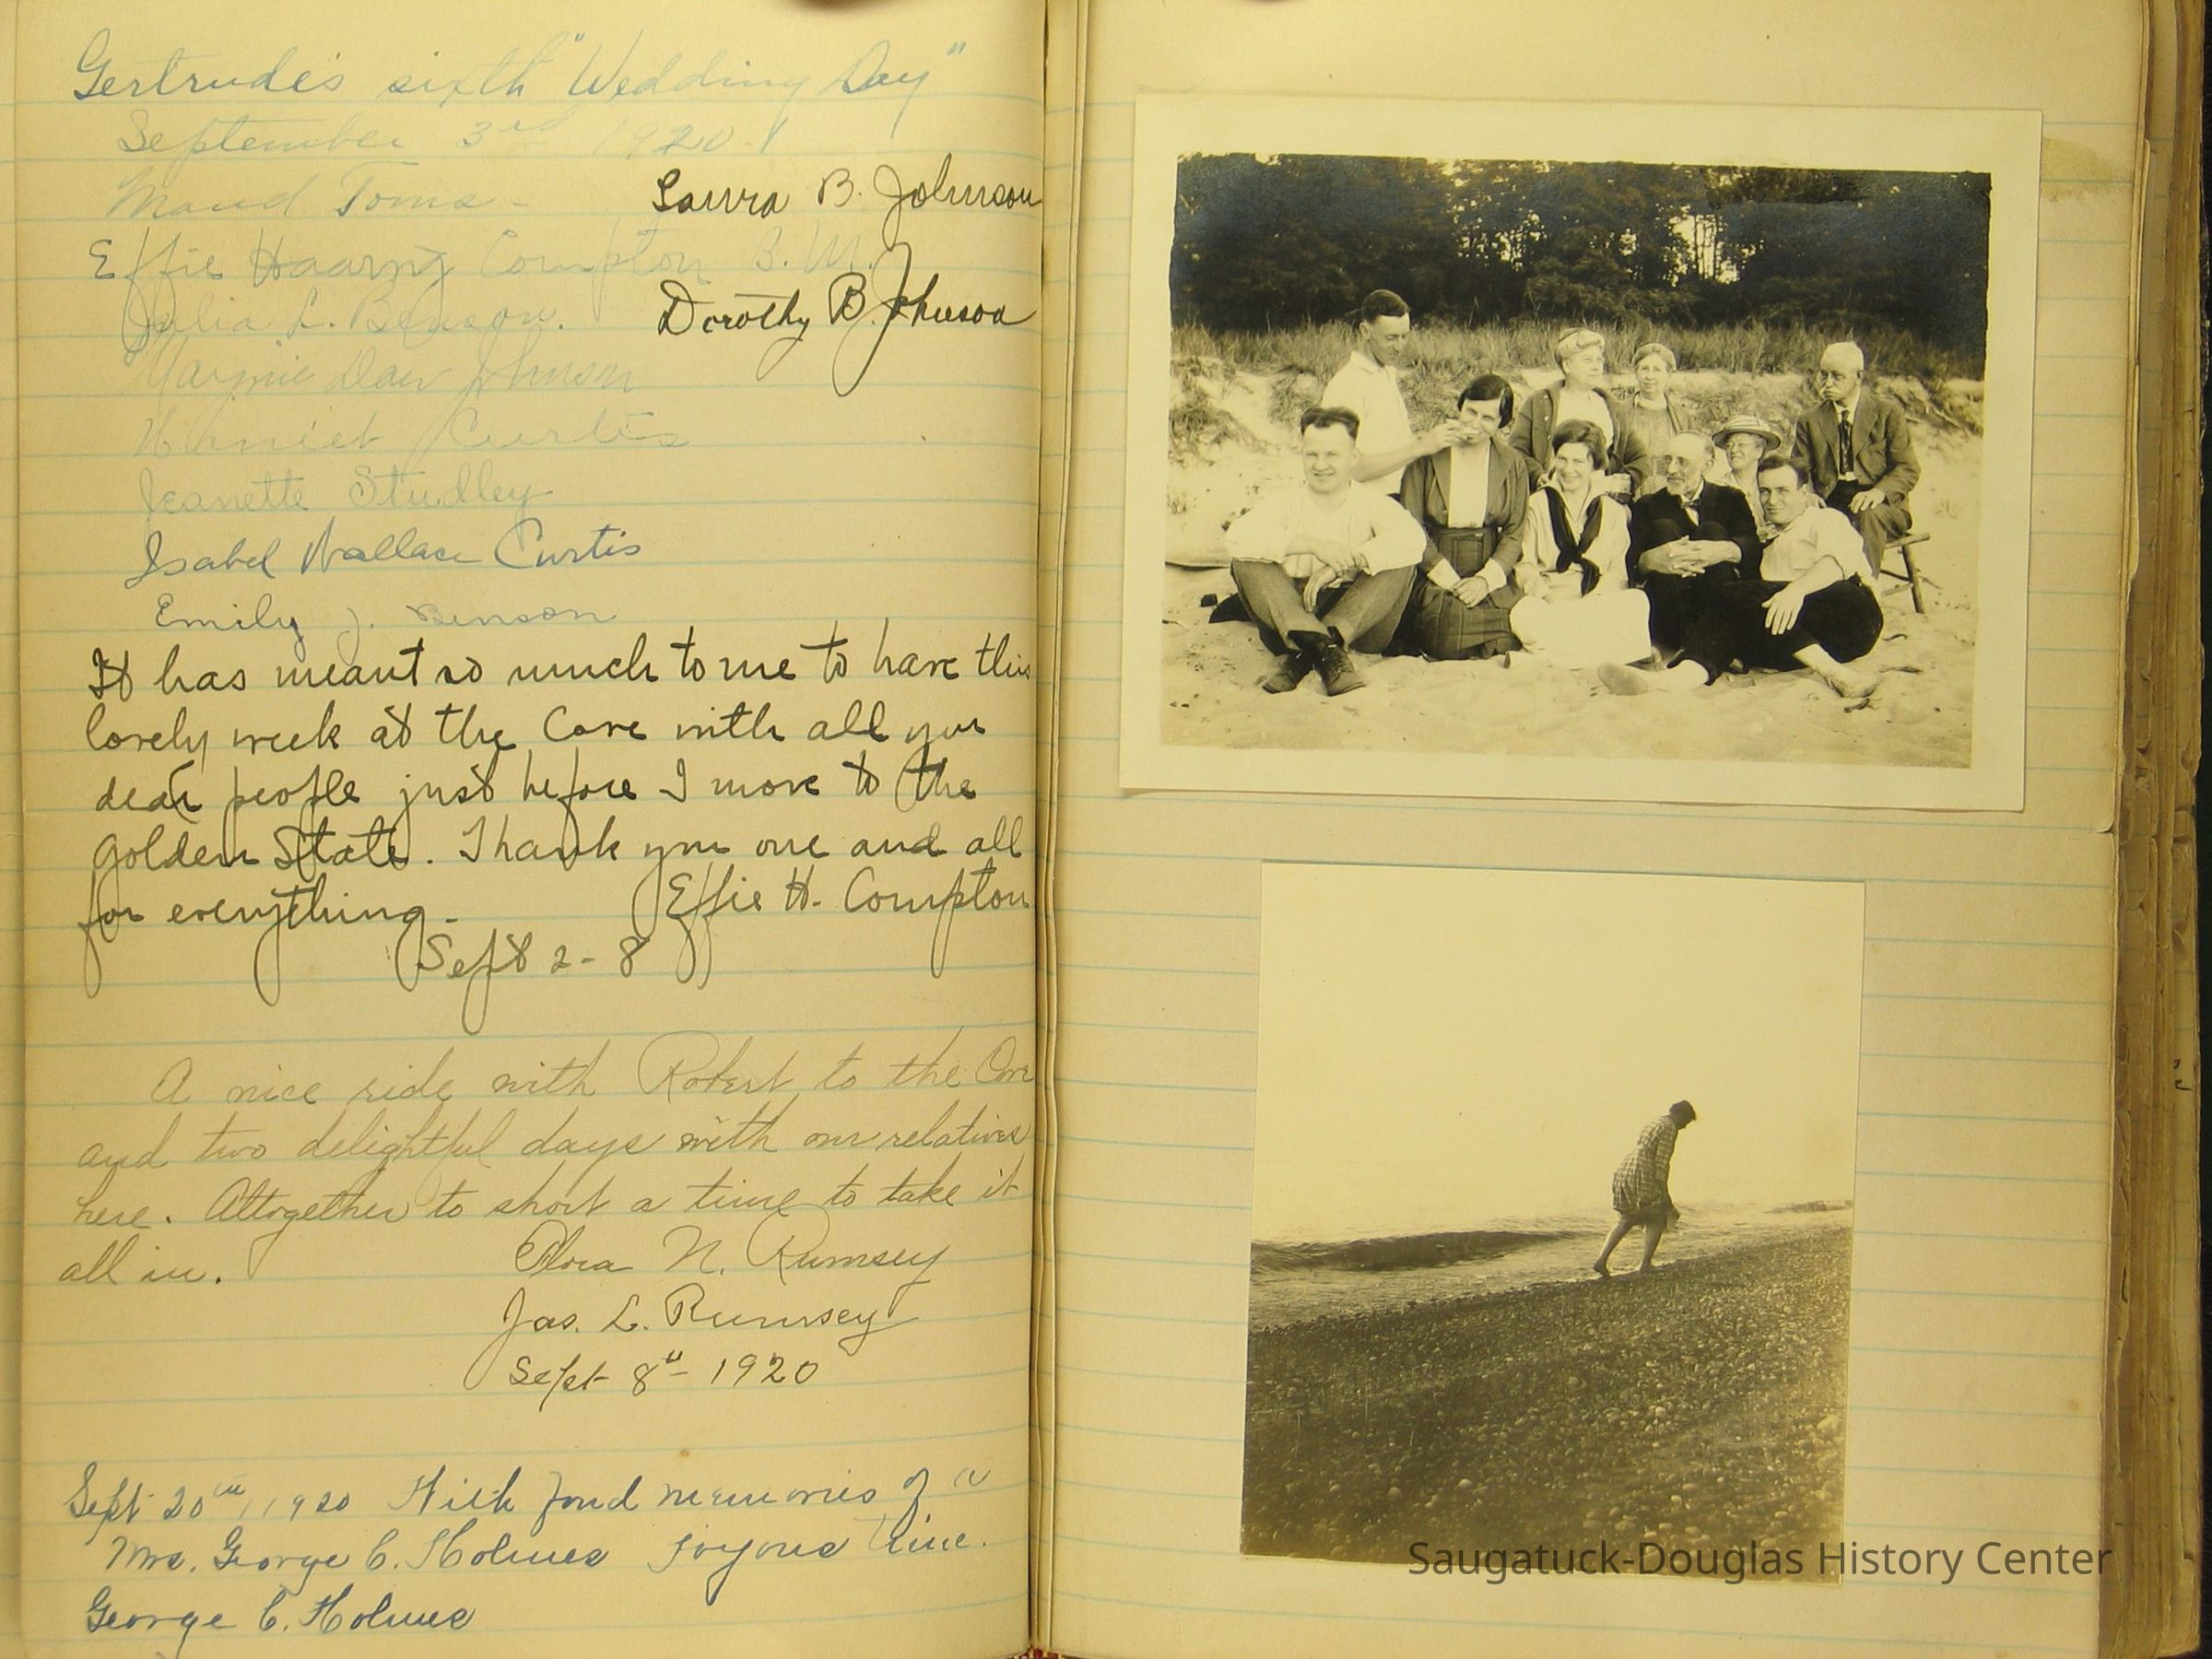 Gertrude's sixth "Wedding Day"
September 3rd 1920.
Maud Toms -
Laura B. Johnson
Effie Haarvig Compton B. M.
Julia L. Benson.
Dorothy B. Johnson
Marjorie Daw Johnson
Harriet Curtis
Jeanette Studley
Isabel Wallace Curtis
Emily J. Benson
It has meant so much to me to have this
lovely week at the Cove with all you
dear people just before I move to the
Golden State. Thank you one and all
for everything - Effie H. Compton
Sept 2-8
A nice ride with Robert to the Cove
and two delightful days with our relatives
here. Altogether to short a time to take it
all in. N. Rumsey
Jas. L. Rumsey
Sept 8" - 1920
Sept 20th, 1920 With fond memories of a
Mrs. George C. Holmes joyous time.
George C. Holmes
Saugatuck-Douglas History Center